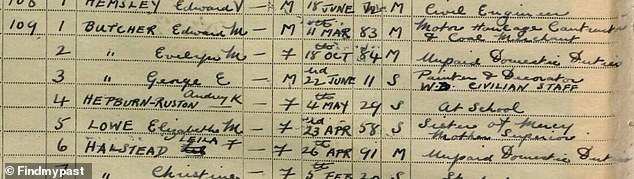 108 1 HEMSLEY Edward V — M 18 JUNE M Civil Engineer
109 1 BUTCHER Edward M — M 11th MAR 83 M Motor Haulage Contractor & Coal Merchant
2 " Evelyn M — F 18th OCT 84 M Unpaid Domestic Duties
3 " George E — M 22nd JUNE 11 S Painter & Decorator
W.D. CIVILIAN STAFF
4 HEPBURN-RUSTON Audrey K — F 4th MAY 29 S At School
5 LOWE Elizabeth M — F 23rd APR 58 S Sister of Mercy
Mother Superior
6 HALSTEAD LEILA F — F 26th APR 91 M Unpaid Domestic Duties
" Christine — F 5th FEB 20 S
Findmypast